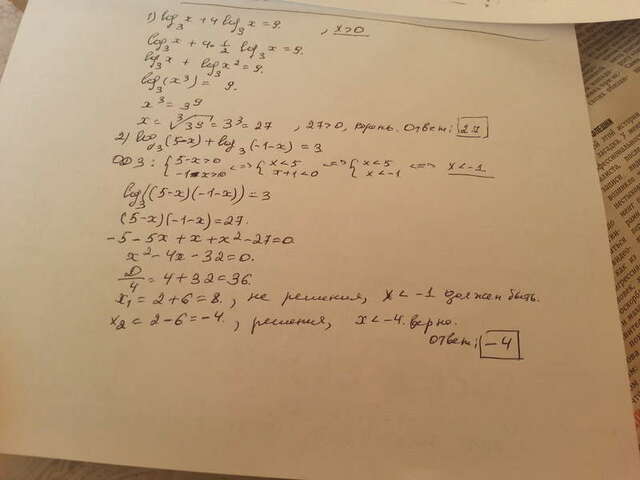 1) log₃x + 4 log₉x = 9 , x>0
log₃x + 4·½ log₃x = 9.
log₃x + log₃x² = 9.
log₃(x³) = 9.
x³ = 3⁹
x = ∛3⁹ = 3³ = 27 , 27>0, верно. Ответ: 27
2) log₃(5-x) + log₃(-1-x) = 3
ОДЗ: { 5-x>0 -1-x>0 <=> { x<5 x+1<0 <=> { x<5 x<-1 <=> x<-1
log₃((5-x)(-1-x)) = 3
(5-x)(-1-x) = 27.
-5-5x+x+x²-27=0
x²-4x-32=0.
D/4 = 4+32=36.
x₁=2+6=8, не решения, x<-1 должен быть.
x₂=2-6=-4, решения, x<-4. верно.
Ответ: -4